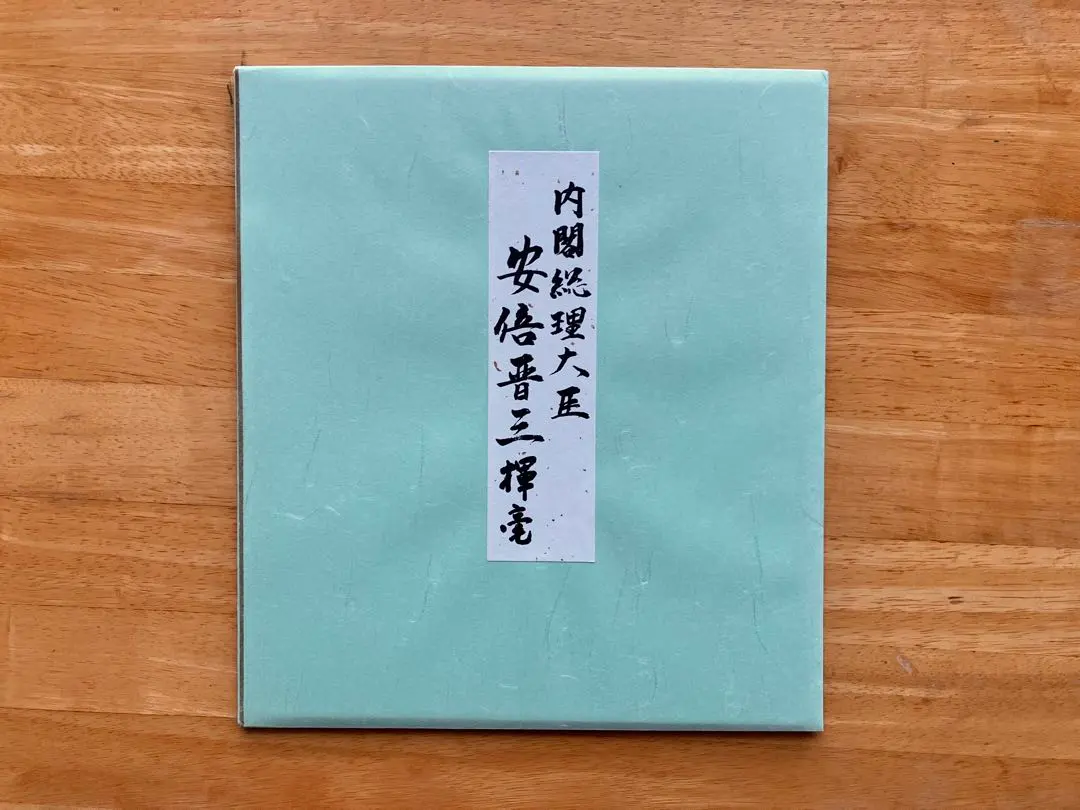 内閣総理大臣
安倍晋三揮毫